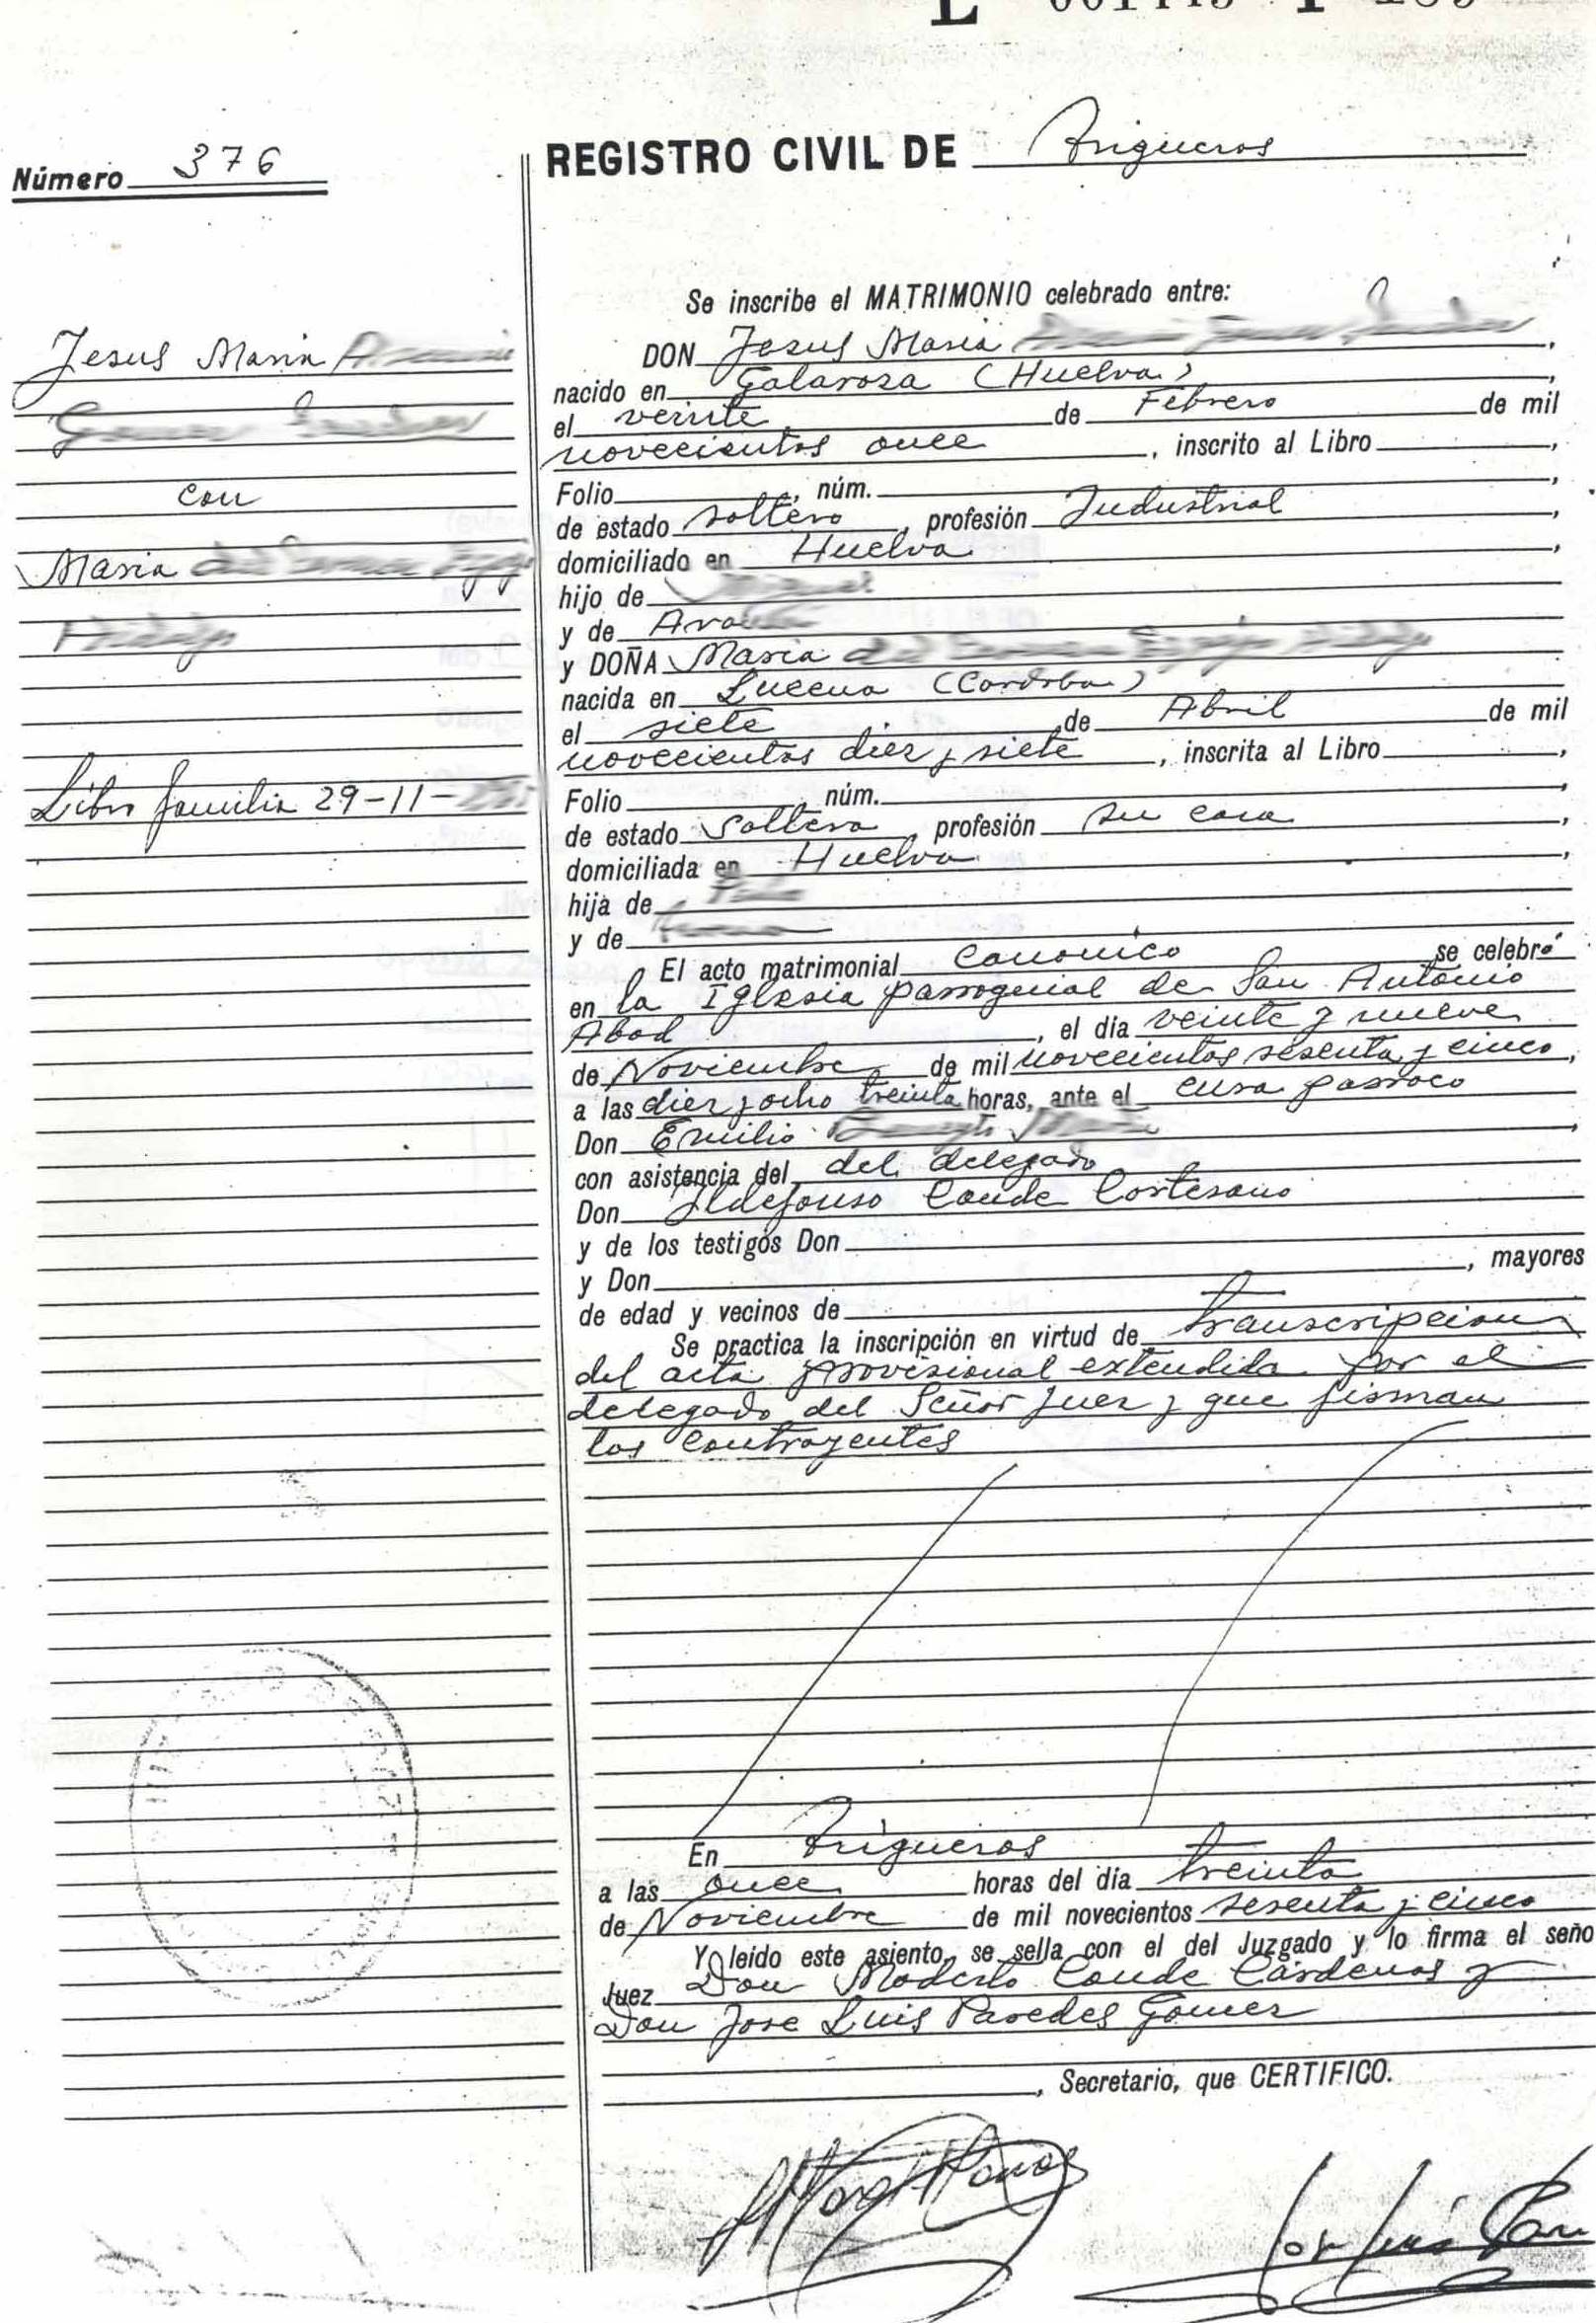 Número 376
REGISTRO CIVIL DE Trigueros
Jesus Maria
con
Maria
Libro familia 29-11-
Se inscribe el MATRIMONIO celebrado entre:
DON Jesus Maria ,
nacido en Galaroza (Huelva) ,
el veinte de Febrero de mil
novecientos once , inscrito al Libro ,
Folio , núm. ,
de estado soltero , profesión Industrial ,
domiciliado en Huelva ,
hijo de
y de
y DOÑA Maria
nacida en Lucena (Cordoba)
el siete de Abril de mil
novecientos diez y siete , inscrita al Libro ,
Folio núm. ,
de estado soltera , profesión su casa ,
domiciliada en Huelva ,
hija de
y de
El acto matrimonial canonico se celebró
en la Iglesia parroquial de San Antonio
Abad , el dia veinte y nueve
de Noviembre de mil novecientos sesenta y cinco,
a las diez y ocho treinta horas, ante el cura parroco
Don Emilio ,
con asistencia del del delegado
Don Ildefonso Conde Cortesano
y de los testigos Don
y Don , mayores
de edad y vecinos de
Se practica la inscripción en virtud de transcripcion
del acta provisional extendida por el
delegado del Señor Juez y que firman
los contrayentes
En Trigueros
a las once horas del dia treinta
de Noviembre de mil novecientos sesenta y cinco
Y leido este asiento, se sella con el del Juzgado y lo firma el seño
Juez Don Modesto Conde Cárdenas y
Don Jose Luis Paredes Gomez
, Secretario, que CERTIFICO.